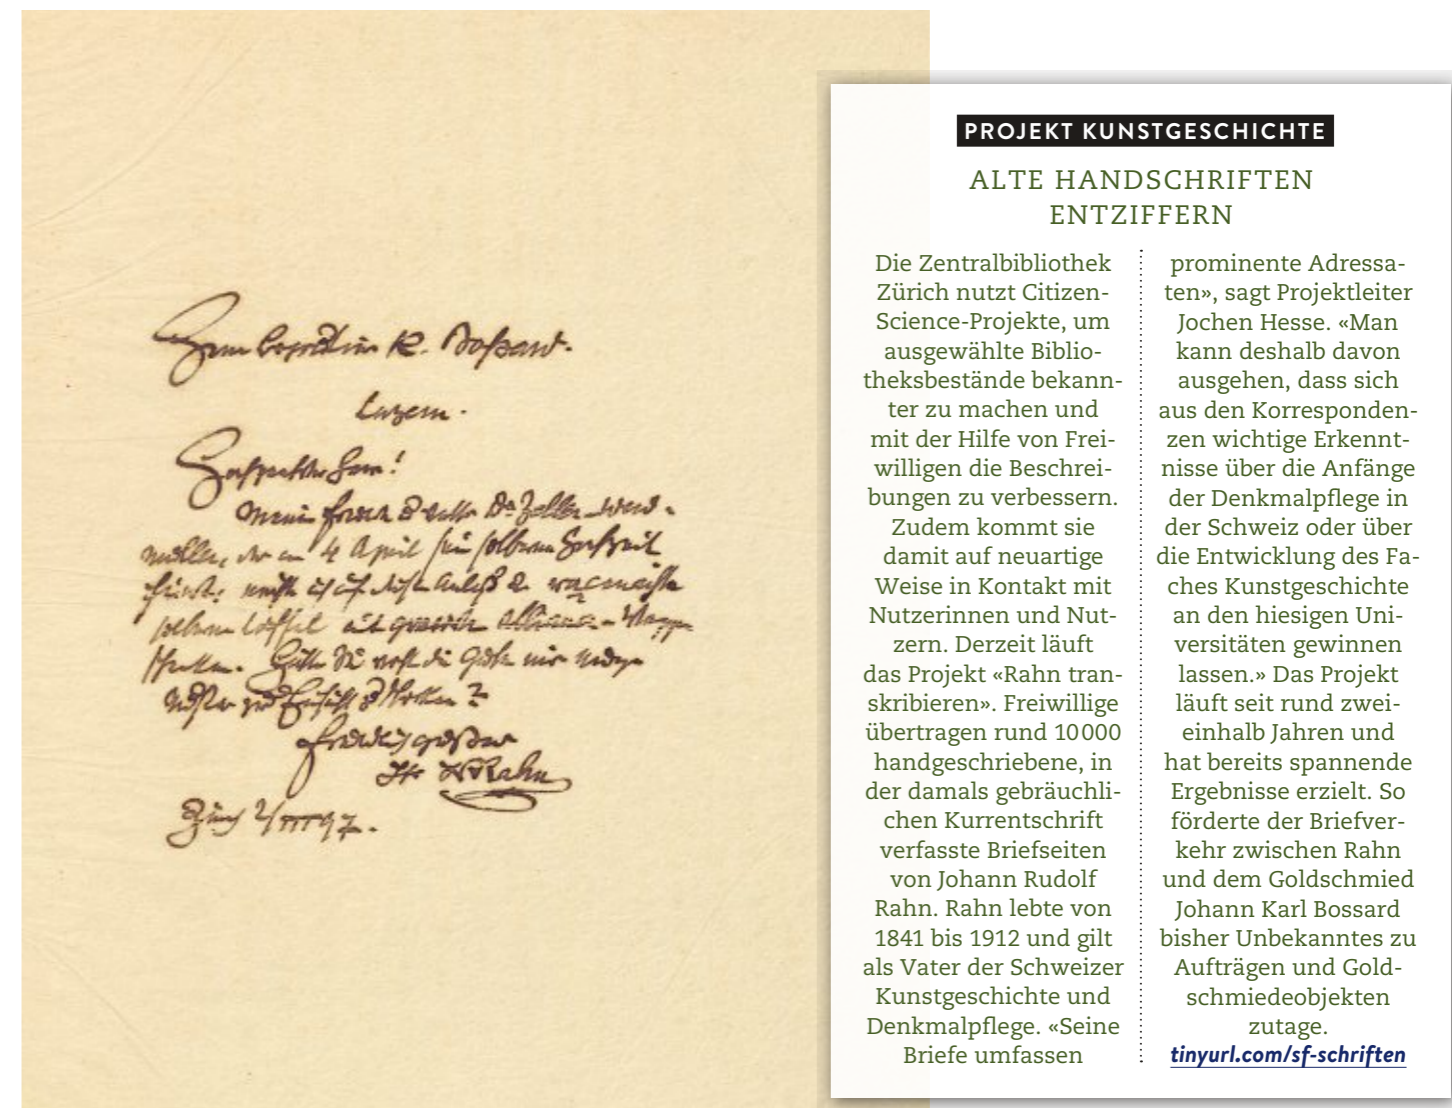 Bossard.
Luzern.
Herr!
Mein Freund Dr Zeller-Werd-
müller, der am 4 April silberne Hochzeit
auf
silberne Löffel mit Allianz-Wappen
Hätten Sie wohl die Güte mir
Muster zur Einsicht
Rahn
Zürich 2/III 97.
PROJEKT KUNSTGESCHICHTE
ALTE HANDSCHRIFTEN
ENTZIFFERN
Die Zentralbibliothek
Zürich nutzt Citizen-
Science-Projekte, um
ausgewählte Biblio-
theksbestände bekann-
ter zu machen und
mit der Hilfe von Frei-
willigen die Beschrei-
bungen zu verbessern.
Zudem kommt sie
damit auf neuartige
Weise in Kontakt mit
Nutzerinnen und Nut-
zern. Derzeit läuft
das Projekt «Rahn tran-
skribieren». Freiwillige
übertragen rund 10 000
handgeschriebene, in
der damals gebräuchli-
chen Kurrentschrift
verfasste Briefseiten
von Johann Rudolf
Rahn. Rahn lebte von
1841 bis 1912 und gilt
als Vater der Schweizer
Kunstgeschichte und
Denkmalpflege. «Seine
Briefe umfassen
prominente Adressa-
ten», sagt Projektleiter
Jochen Hesse. «Man
kann deshalb davon
ausgehen, dass sich
aus den Korresponden-
zen wichtige Erkennt-
nisse über die Anfänge
der Denkmalpflege in
der Schweiz oder über
die Entwicklung des Fa-
ches Kunstgeschichte
an den hiesigen Uni-
versitäten gewinnen
lassen.» Das Projekt
läuft seit rund zwei-
einhalb Jahren und
hat bereits spannende
Ergebnisse erzielt. So
förderte der Briefver-
kehr zwischen Rahn
und dem Goldschmied
Johann Karl Bossard
bisher Unbekanntes zu
Aufträgen und Gold-
schmiedeobjekten
zutage.
tinyurl.com/sf-schriften